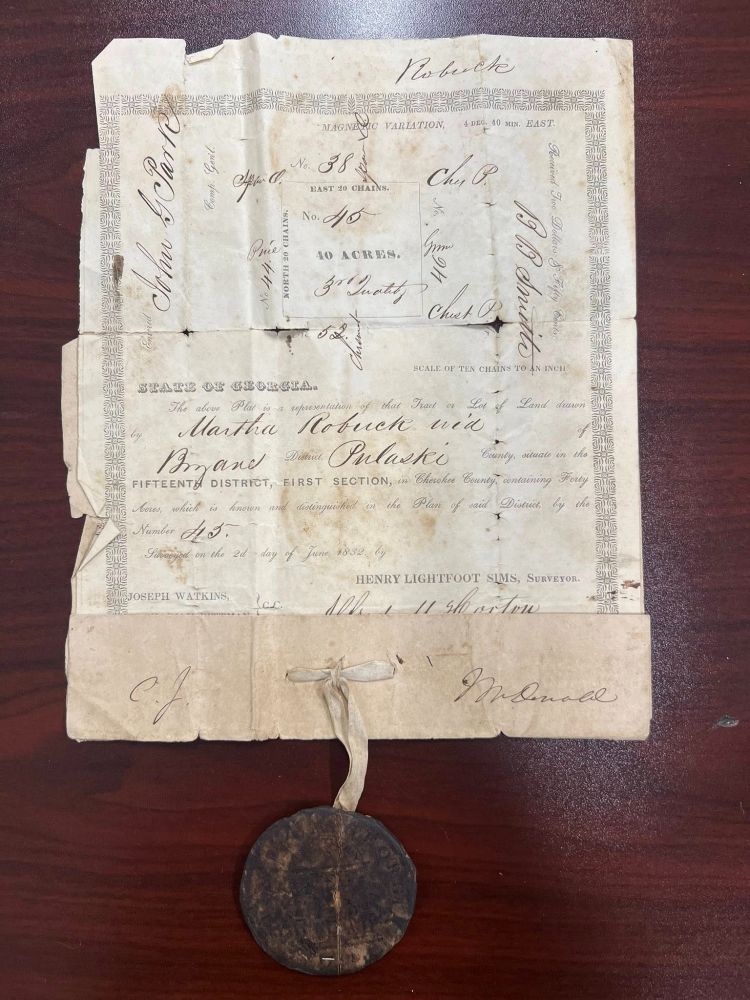 Robuck
MAGNETIC VARIATION, 4 DEG. 40 MIN. EAST.
No. 38
EAST 20 CHAINS.
No. 45
40 ACRES.
3rd Quality
NORTH 20 CHAINS.
Pine
No. 44
Ches P.
No.
Chest P.
52.
Chesnut
John G Park
Comp. Genl.
Received Two Dollars & Fifty Cents
B B Smith
SCALE OF TEN CHAINS TO AN INCH
STATE OF GEORGIA.
The above Plat is a representation of that Tract or Lot of Land drawn
by Martha Robuck wid of
Bryans District, Pulaski County, situate in the
FIFTEENTH DISTRICT, FIRST SECTION, in Cherokee County, containing Forty
Acres, which is known and distinguished in the Plan of said District, by the
Number 45.
Surveyed on the 2d day of June 1832, by
HENRY LIGHTFOOT SIMS, SURVEYOR.
JOSEPH WATKINS,
C.C.
C. J. McDonald